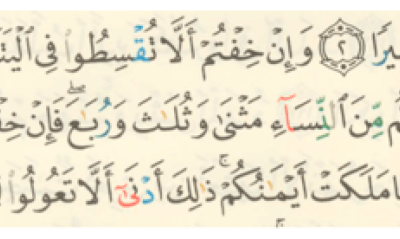 يرًا ٢ وَإِنْ خِفْتُمْ أَلَّا تُقْسِطُوا۟ فِى ٱلْيَتَ
م مِّنَ ٱلنِّسَآءِ مَثْنَىٰ وَثُلَـٰثَ وَرُبَـٰعَ ۖ فَإِنْ خِفْ
مَا مَلَكَتْ أَيْمَـٰنُكُمْ ۚ ذَٰلِكَ أَدْنَىٰٓ أَلَّا تَعُولُوا۟